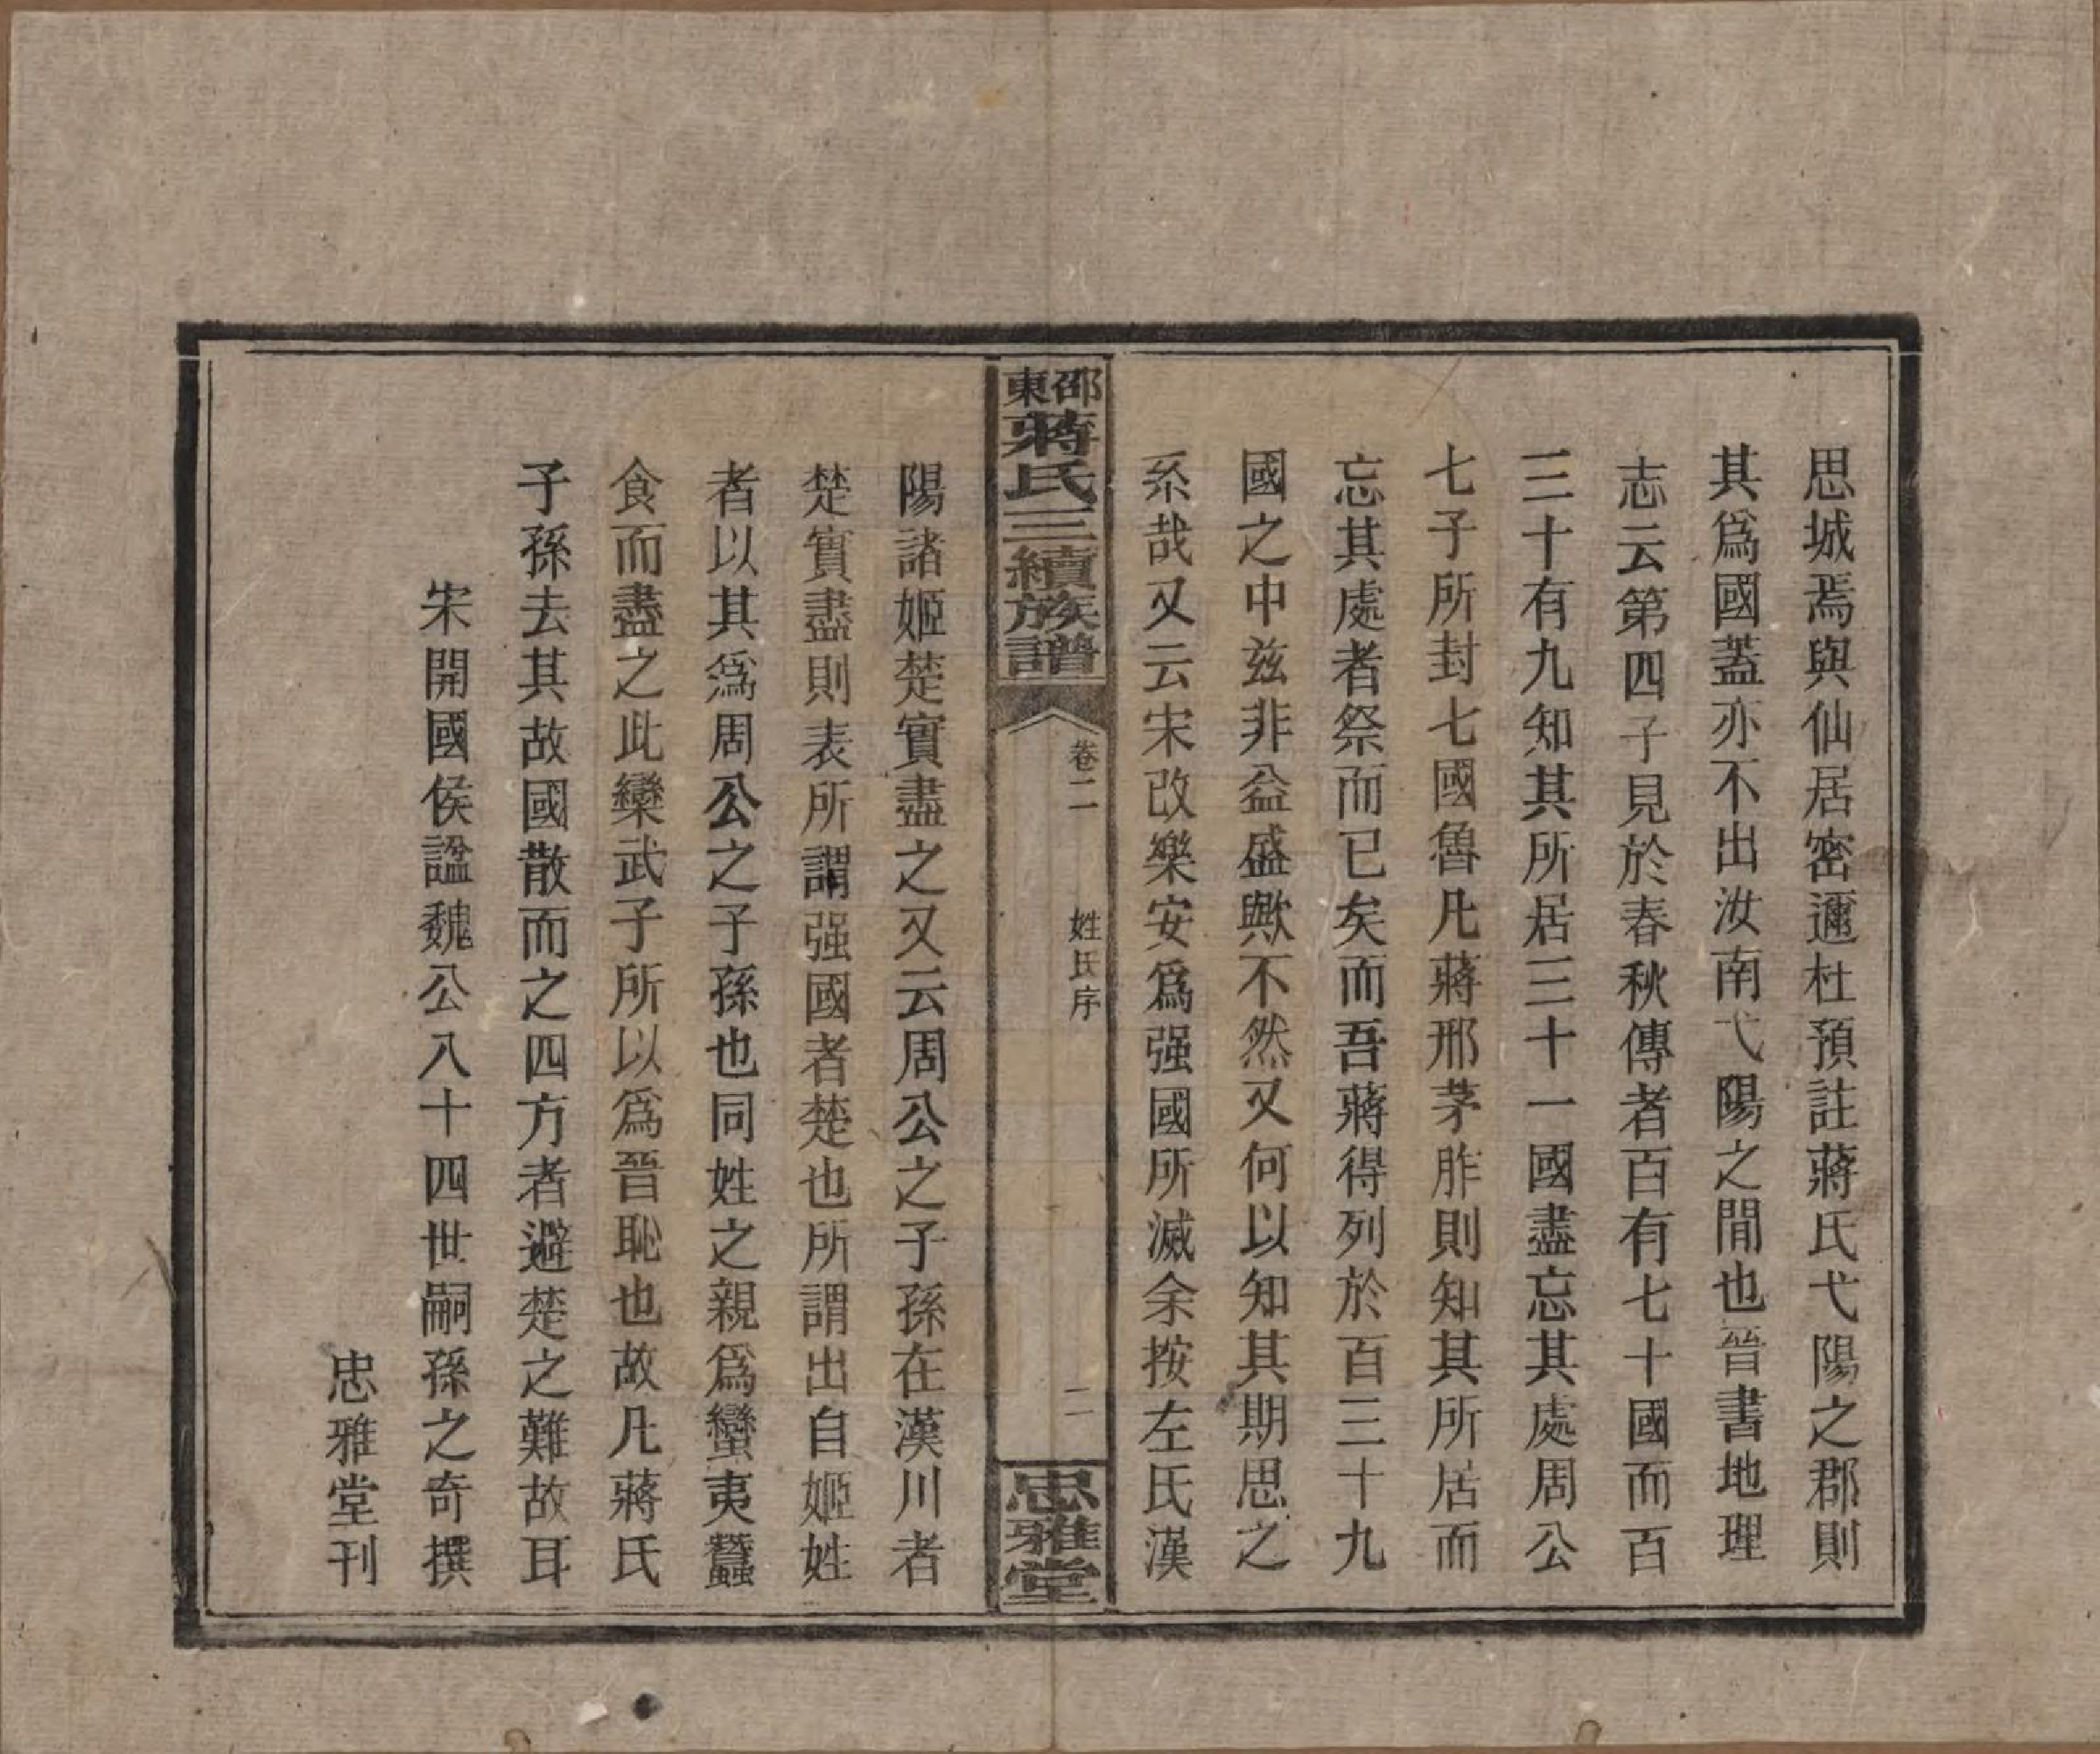 思城焉與仙居密邇杜預註蔣氏弋陽之郡則
其爲國蓋亦不出汝南弋陽之間也晉書地理
志云第四子見於春秋傳者百有七十國而百
三十有九知其所居三十一國盡忘其處周公
七子所封七國魯凡蔣邢茅胙則知其所居而
忘其處者祭而已矣而吾蔣得列於百三十九
國之中兹非益盛歟不然又何以知其期思之
系哉又云宋改樂安爲强國所滅余按左氏漢
邵東蔣氏三續族譜
卷二
姓氏序
二
忠雅堂
陽諸姬楚實盡之又云周公之子孫在漢川者
楚實盡則表所謂强國者楚也所謂出自姬姓
者以其爲周公之子孫也同姓之親爲蠻夷蠶
食而盡之此欒武子所以爲晉恥也故凡蔣氏
子孫去其故國散而之四方者避楚之難故耳
宋開國侯諡魏公八十四世嗣孫之奇撰
忠雅堂刊